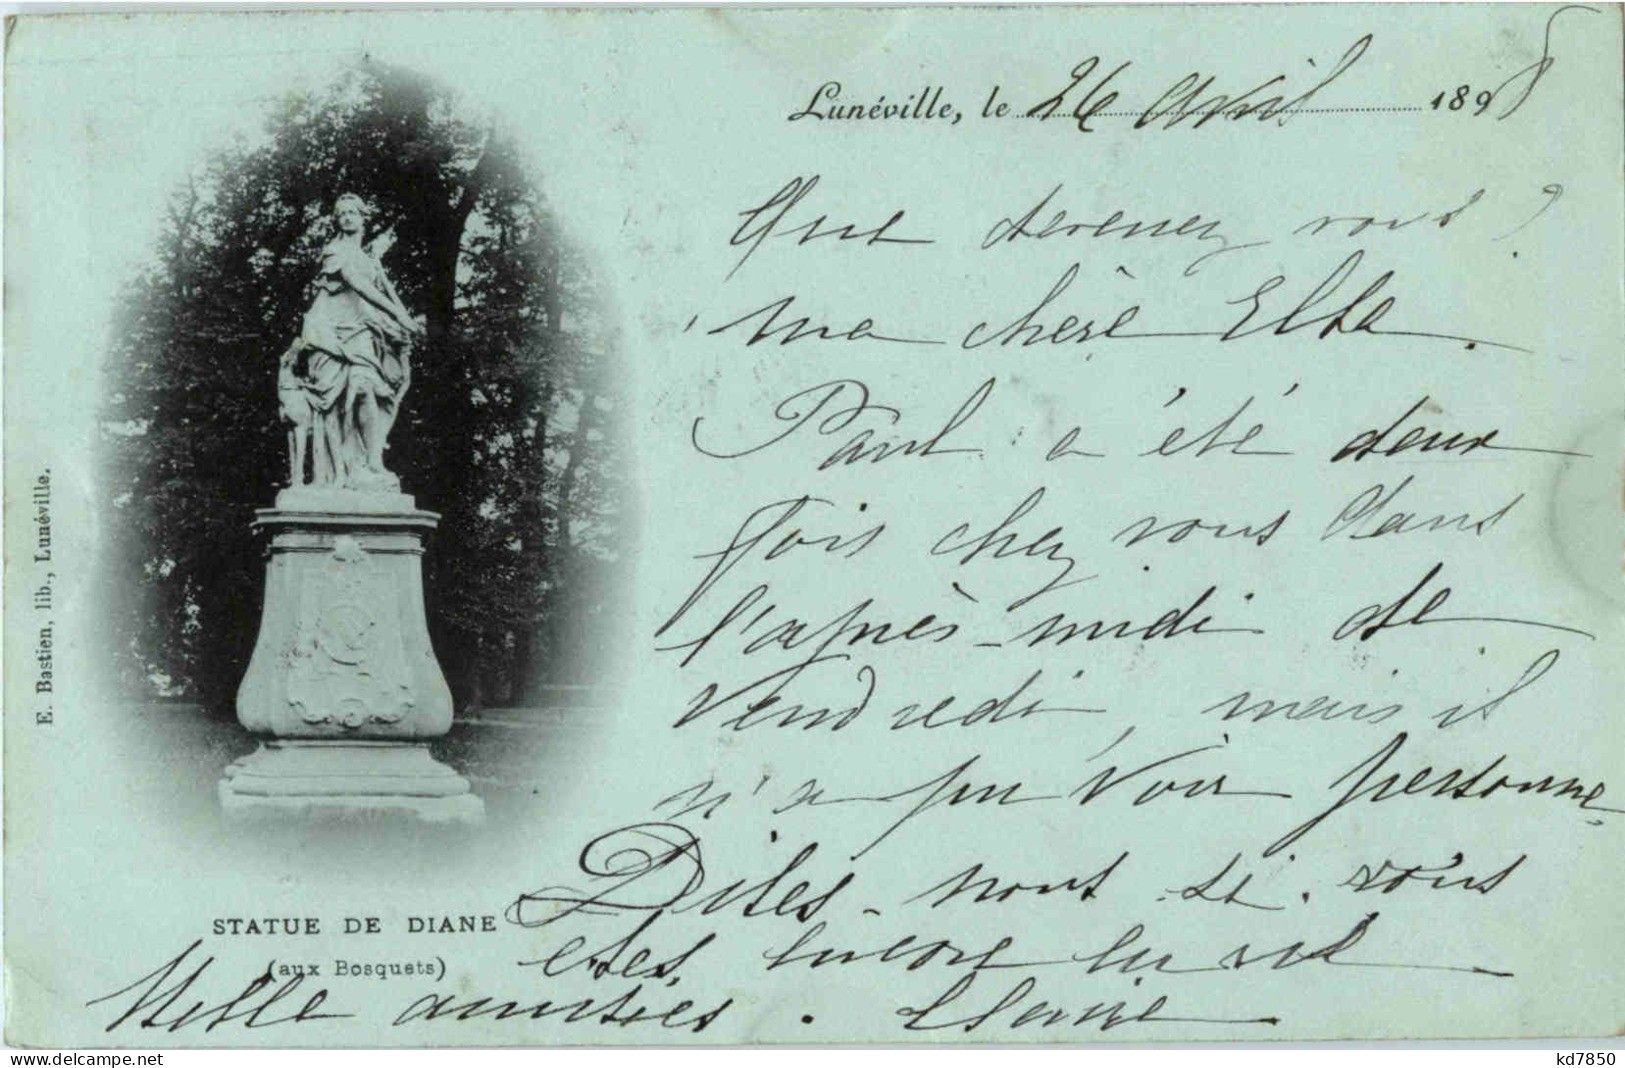 Lunéville, le 26 avril 1898
Que devenez vous?
ma chère Elba.
Paul a été deux
fois chez vous dans
l'après-midi de
Vendredi, mais il
n'a pu voir personne,
Dites-nous si vous
êtes encore en vie
Mille amitiés. Claire
STATUE DE DIANE
(aux Bosquets)
E. Bastien, lib., Lunéville.
kd7850